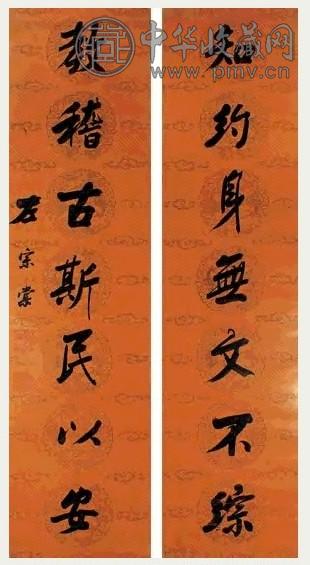 中华收藏网
www.pmv.cn
知約身無文不綜
稽古斯民以安
左宗棠